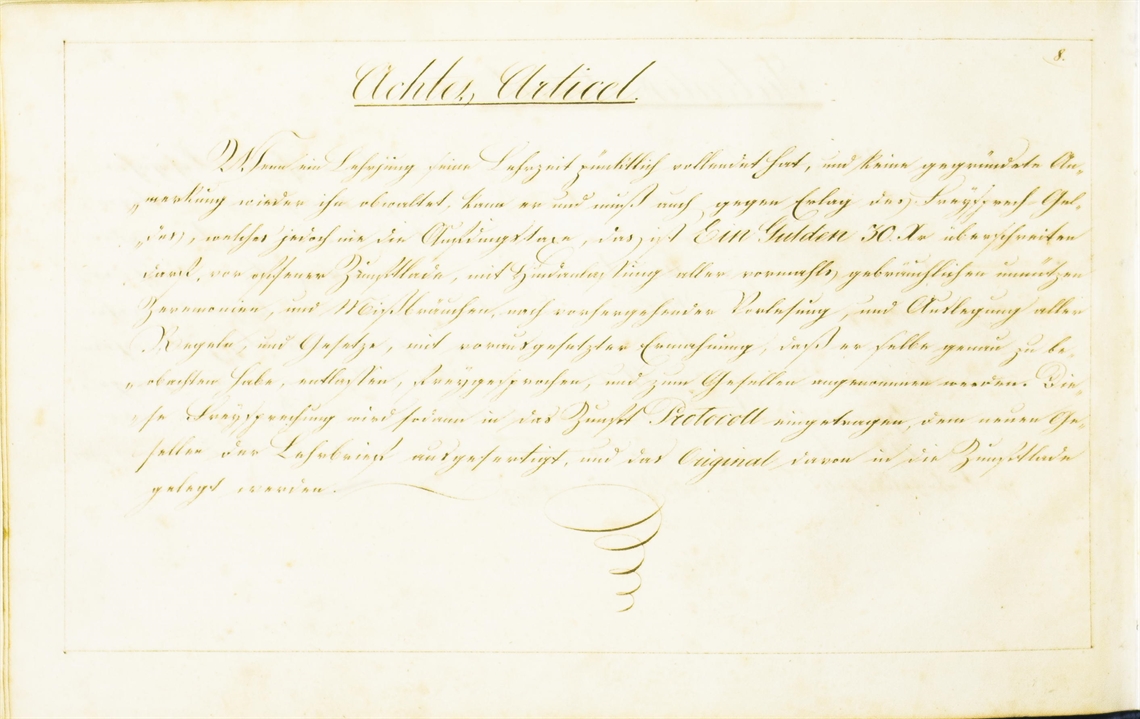 8.
Achter Articel.
Wenn ein Lehrjung seine Lehrzeit pünktlich vollendet hat, und keine gegründete An„
„merkung wieder ihn obwaltet, kann er und muß auch gegen Erlag des Freysprech Gel„
„des, welches jedoch nie die Aufdingstaxe, das ist Ein Gulden 30. Xr überschreiten
darf, vor offener Zunftlade, mit Hindanlassung aller vormahls gebräuchlichen unnützen
Zeremonien, und Mißbräuchen, nach vorhergehender Vorlesung, und Auslegung aller
Regeln, und Gesetze, mit vorausgesetzter Ermahnung, daß er selbe genau zu be„
„obachten habe, entlassen, freygesprochen, und zum Gesellen angenommen werden. Die„
„se Freysprechung wird sodann in das Zunft Protocoll eingetragen, dem neuen Ge„
sellen der Lehrbrief ausgefertigt, und das Original davon in die Zunftlade
gelegt werden.